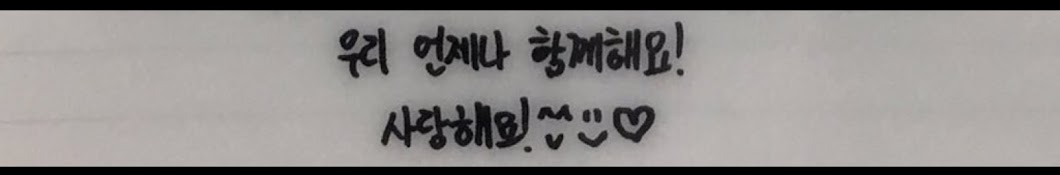 우리 언제나 함께해요!
사랑해요! ^^ :) ♡